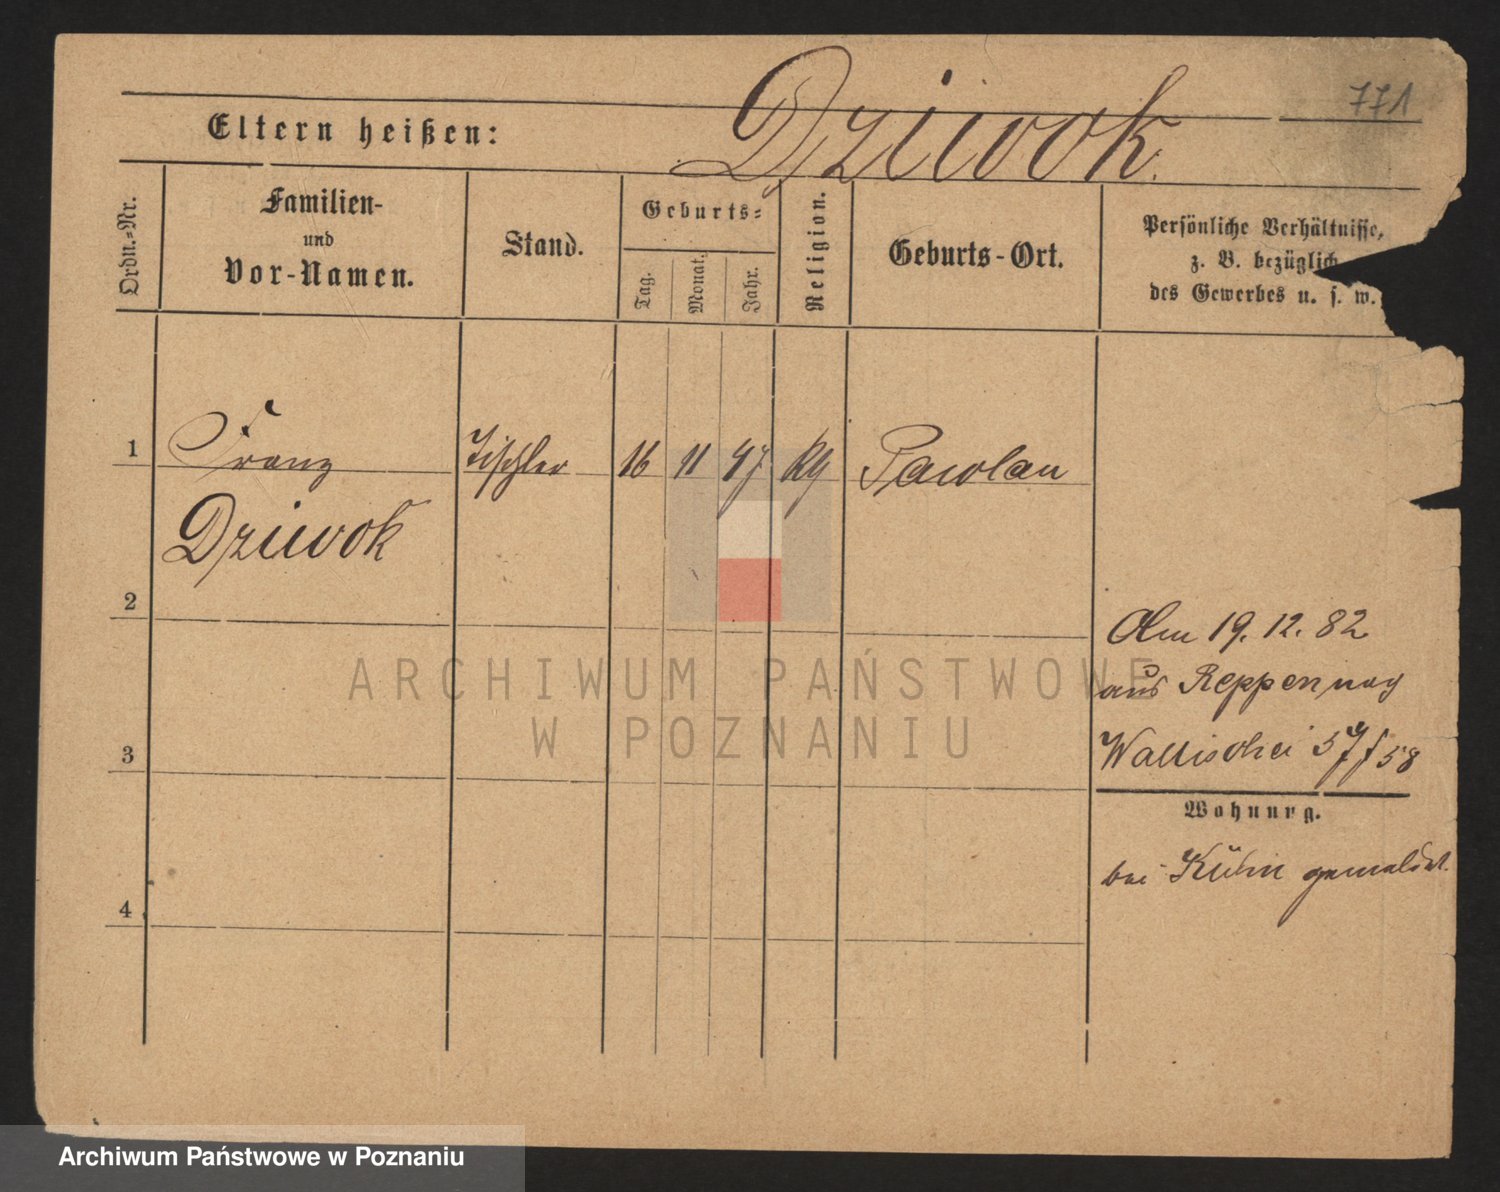 771
Dziwok
Eltern heißen:
Ordn.-Nr.
Familien-
und
Vor-Namen.
Stand.
Geburts-
Tag.
Monat.
Jahr.
Religion.
Geburts-Ort.
Persönliche Verhältnisse,
z. B. bezüglich
des Gewerbes u. s. w.
1 Franz Tischler 16 11 47 Pawlau
Dziwok
2
3
4
Am 19. 12. 82
aus Reppen nach
Wallischei 57/58
Wohnung.
bei Kühn gemeldet.
ARCHIWUM PAŃSTWOWE
W POZNANIU
Archiwum Państwowe w Poznaniu